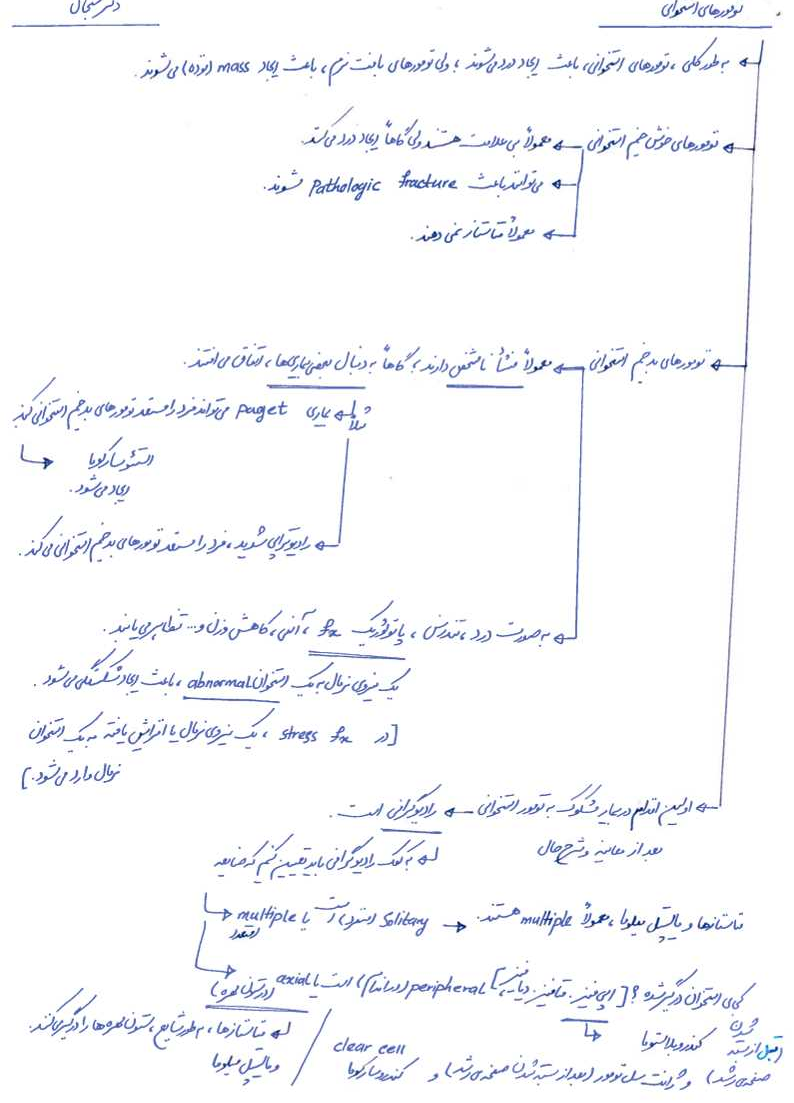 تومورهای استخوانی
دکتر سنجال
به طور کلی، تومورهای استخوانی، باعث ایجاد درد می‌شوند؛ ولی تومورهای بافت نرم، باعث ایجاد mass (توده) می‌شوند.
تومورهای خوش خیم استخوانی ← معمولاً بی علامت هستند ولی گاهاً ایجاد درد می‌کنند.
← می‌توانند باعث Pathologic fracture شوند.
← معمولاً متاستاز نمی دهند.
تومورهای بدخیم استخوانی ← معمولاً منشأ نامشخص دارند؛ گاهاً به دنبال بعضی بیماری‌ها، اتفاق می افتند.
مثلاً ← بیماری paget می‌تواند فرد را مستعد تومورهای بدخیم استخوانی کند
استئوسارکوما
ایجاد می‌شود.
← رادیوتراپی شدید، فرد را مستعد تومورهای بدخیم استخوانی می‌کند.
← به صورت درد، تندرنس، پاتولوژیک fx، آنمی، کاهش وزن و... تظاهر می‌یابند.
یک نیروی نرمال به یک استخوان abnormal، باعث ایجاد شکستگی می‌شود.
[در stress fx، یک نیروی نرمال یا افزایش یافته به یک استخوان
نرمال وارد می‌شود.]
← اولین اقدام در بیمار مشکوک به تومور استخوانی ← رادیوگرافی است.
بعد از معاینه و شرح حال
← به کمک رادیوگرافی باید تعیین کنیم که ضایعه
Solitary (منفرد) است یا multiple (متعدد) → متاستازها و مالتیپل میلوما، معمولاً multiple هستند.
کجای استخوان درگیر شده؟ [اپی فیز، متافیز، دیافیز] peripheral (در اندام) است یا axial (در ستون مهره)
← متاستازها، به طور شایع، ستون مهره‌ها را درگیر می‌کنند.
و مالتیپل میلوما
کندروبلاستوما (قبل از بسته شدن
صفحه‌ی رشد) و ژانت سل تومور (بعد از بسته شدن صفحه‌ی رشد) و clear cell کندروسارکوما